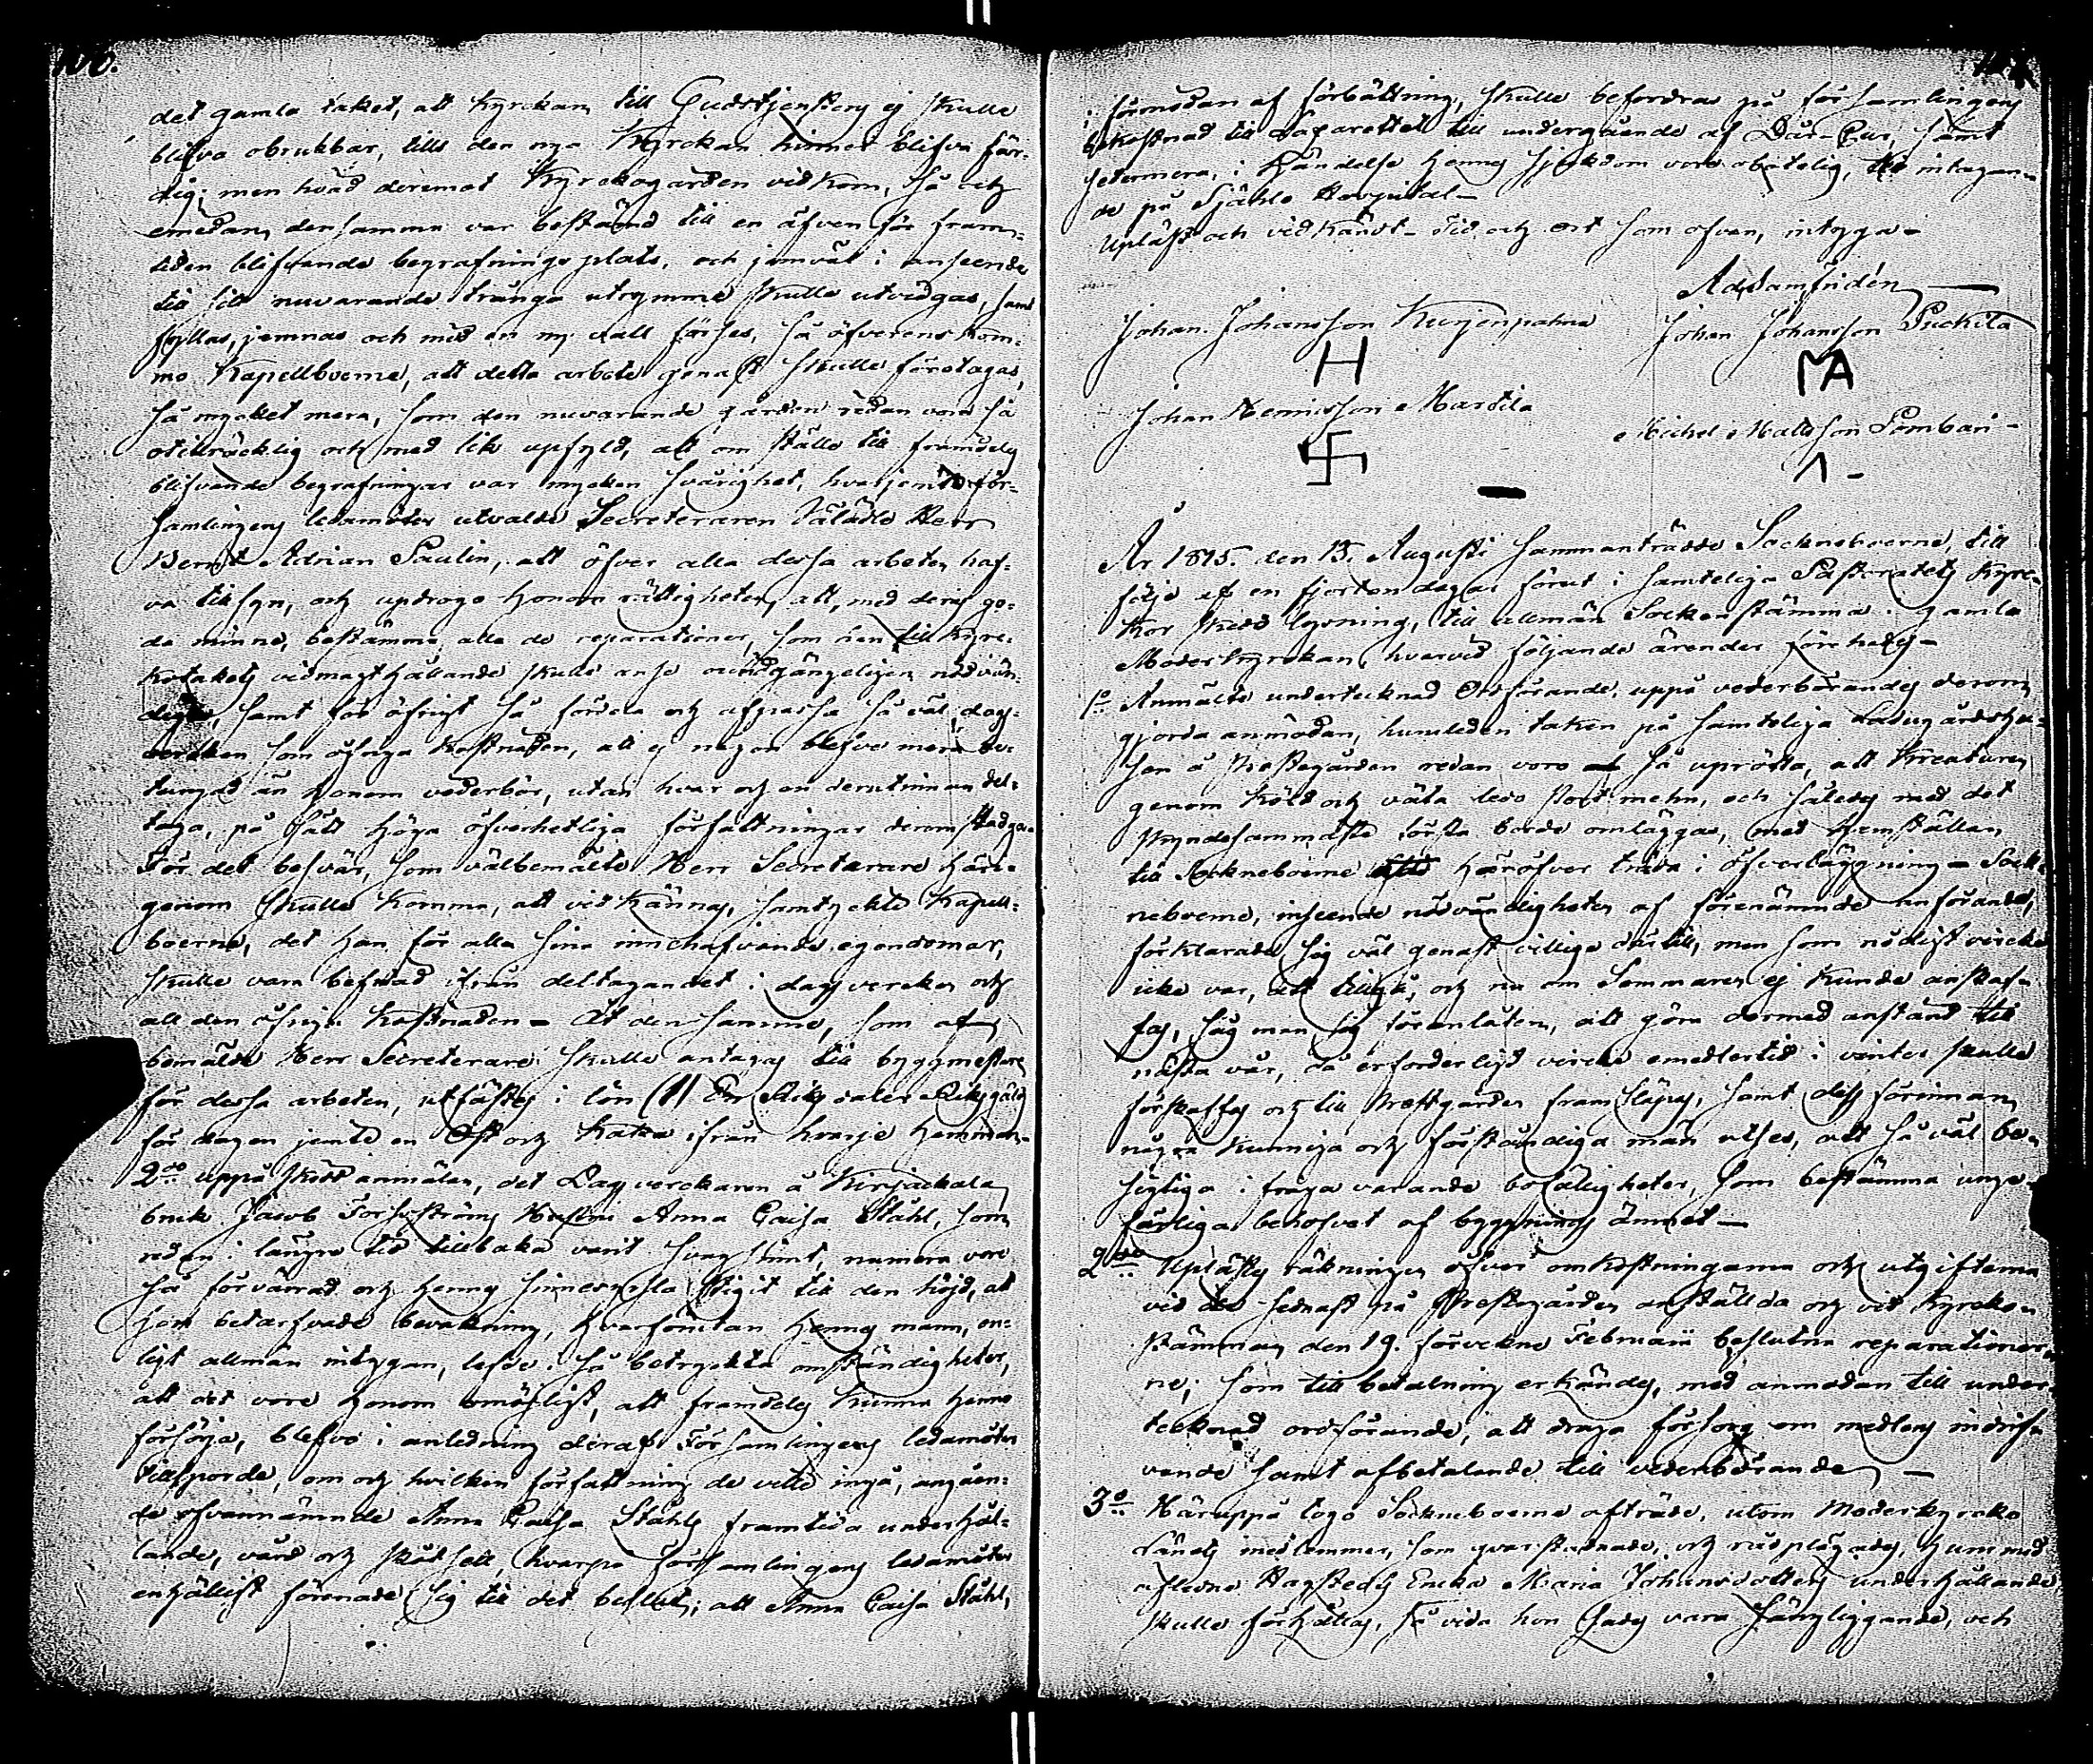 106.
det gamla taket, att Kyrckan till Gudstjensten ej skulle
blifva obrukbar, tills den nya Kyrckan hinner blifva fär-
dig; men hvad deremot Kyrckogården vidkom, så och
emedan densamma var bestämd till en äfven för fram-
tiden blifvande begrafnings plats, och jemväl i anseende
till sitt nuvarande trånga utrymme skulle utvidgas, samt
fyllas, jemnas och med en ny vall förses, så öfverens kom-
mo Kapellboerne, att detta arbete genast skulle företagas,
så mycket mera, som den nuvarande gården redan vore så
otillräcklig och med lik upfyld, att om ställe till framdeles
blifvande begrafningar var mycken svårighet, hvarjemte för-
samlingens ledamöter utvalde Secreteraren Välädle Herr
Bernt Adrian Paulin, att öfver alla dessa arbeten haf-
va tillsyn, och updrogo honom rättigheten, att, med deras go-
da minne, bestämma alla de reparationer, som den till Kyrc-
kotakets vidmagthållande skulle anse oundgängeligen nödvän-
diga, samt för öfrigt så fördela och afpassa så väl dags-
vercken som öfriga kostnaden, att ej någon blefvo mera be-
tungad än honom vederbör, utan hvar och en derutinnan del-
taga, på sätt höga öfverhetliga författningar derom stadga.
För det besvär, som välbemälte Herr Secreterare häri-
genom skulle komma, att vidkännas, samtyckte Kapell-
boerne, det han för alla sina innehafvande egendomar,
skulle vara befriad ifrån deltagandet i dagsvercken och
all den öfriga kostnaden - Åt densamme, som af
bemälde Herr Secreterare skulle antagas till byggmästare
för dessa arbeten, utfästes i lön (1) En Riksdaler Riksgäld
för dagen jemte en Ost och Kaka ifrån hvarje Hemman.
2do uppå skedd anmälan, det Dagverckaren å Kirjackala
bruk Jacob Forsströms Hustru Anna Caisa Ståhl, som
redan i längre tid tillbaka varit svagsint, numera vore
så förvärrad och hennes sinnesyrsla stigit till den höjd, att
hon betarfvade bevakning, hvarförutan hennes mann, en-
ligt allmän intygan, lefde i så betryckta omständigheter,
att det vore honom omöjligt, att framdeles kunna henne
försörja, blefvo i anledning deraf Församlingens ledamöter
tillsporde, om och hvilken författning de ville ingå, angåen-
de ofvannämnde Anna Caisa Ståhls framtida underhål-
lande, vård och skötsell, hvarpå församlingens ledamöter
enhälligt förenade sig till det beslut; att Anna Caisa Ståhl,
i förmodan af förbättring, skulle befordras på församlingens
bekostnad till Lazarettet till undergående af Dår-Cur, samt
sedermera, i händelse hennes sjukdom vore obotelig, till intagan-
de på Själö Hospital -
Upläst och vidkändt - Tid och ort som ofvan, intyga -
Ad. Samfridén
Johan Johansson Kurjenpahna Johan Johansson Puckila
H MA
Johan Henricsson Martila Michel Mattsson Pombari -
År 1815. den 13. Augusti sammanträdde Sockneboerne, till
följe af en fjorton dagar förut i samteliga Pastoratets Kyrc-
kor skedd lysning, till allmän Sockenstämma i gamla
Moderkyrckan, hvarvid följande ärender förehades -
1o Anmälte undertecknad Ordförande, uppå vederbörandes derom
gjorda anmodan, huruledes taken på samteliga Ladugårdshu-
sen å Prästegården redan voro så uprötta, att Kreaturen
genom köld och väta ledo stort mehn, och således med det
skyndesammaste första borde omläggas, med hemställan
till Sockneboerne häröfver träda i öfverläggning - Sock-
neboerne, inseende nödvändigheten af förenämnde anförande,
förklarade sig väl genast villige därtill, men som nödigt vircke
icke var, att tillgå, och nu om Sommaren ej kunde anskaf-
fas, såg man sig föranlåten, att göra dermed anstånd till
nästa vår, då erforderligt vircke emedlertid i vinter skulle
förskaffas och till Prestgården framsläpas, samt dess förinnan
några kunniga och förståndiga män utses, att så väl be-
sigtiga i fråga varande bofälligheter, som bestämma unge-
färliga behofvet af byggnings ämnet -
2do Uplästes räkningen öfver omkostningarna och utgifterna
vid de sednast på Prestegården anställda och vid Kyrcko-
stämman den 19. förvekne Februarii beslutna reparationer-
ne; som till betalning erkändes, med anmodan till under-
tecknad ordförande, att draga försorg om medlens indrif-
vande samt afbetalande till vederbörande -
3o Häruppå togo Sockneboerne afträde, utom Moderkyrcko
Länets inedlemmar, som qvarstadnade, och rådplägades, hurumed
aflidne Enka Maria Johansdotters underhållande,
skulle förhållas, så vida hon sades vara sängliggande, och